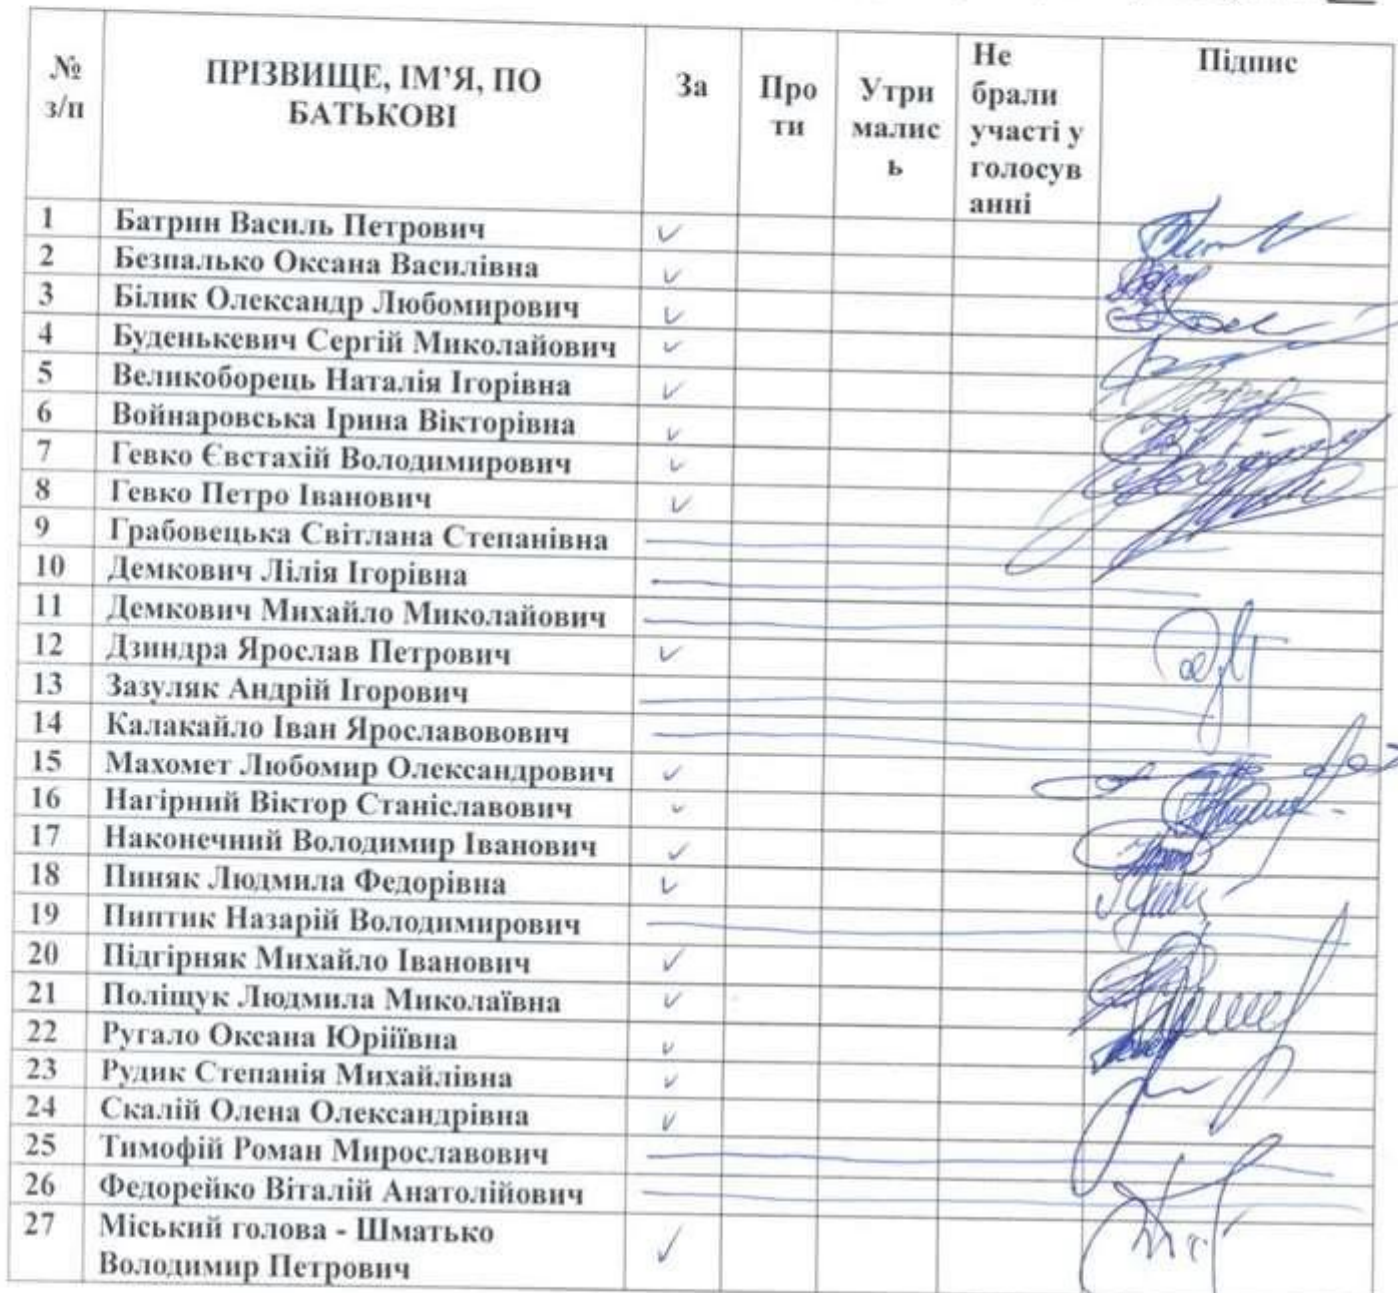 № з/п ПРІЗВИЩЕ, ІМ’Я, ПО БАТЬКОВІ За Про ти Утри малис ь Не брали участі у голосув анні Підпис
1 Батрин Василь Петрович ✓
2 Безпалько Оксана Василівна ✓
3 Білик Олександр Любомирович ✓
4 Буденькевич Сергій Миколайович ✓
5 Великоборець Наталія Ігорівна ✓
6 Войнаровська Ірина Вікторівна ✓
7 Гевко Євстахій Володимирович ✓
8 Гевко Петро Іванович ✓
9 Грабовецька Світлана Степанівна
10 Демкович Лілія Ігорівна
11 Демкович Михайло Миколайович
12 Дзиндра Ярослав Петрович ✓
13 Зазуляк Андрій Ігорович
14 Калакайло Іван Ярославовович
15 Махомет Любомир Олександрович ✓
16 Нагірний Віктор Станіславович ✓
17 Наконечний Володимир Іванович ✓
18 Пиняк Людмила Федорівна ✓
19 Пиптик Назарій Володимирович
20 Підгірняк Михайло Іванович ✓
21 Поліщук Людмила Миколаївна ✓
22 Ругало Оксана Юріїївна ✓
23 Рудик Степанія Михайлівна ✓
24 Скалій Олена Олександрівна ✓
25 Тимофій Роман Мирославович
26 Федорейко Віталій Анатолійович
27 Міський голова - Шматько
Володимир Петрович ✓